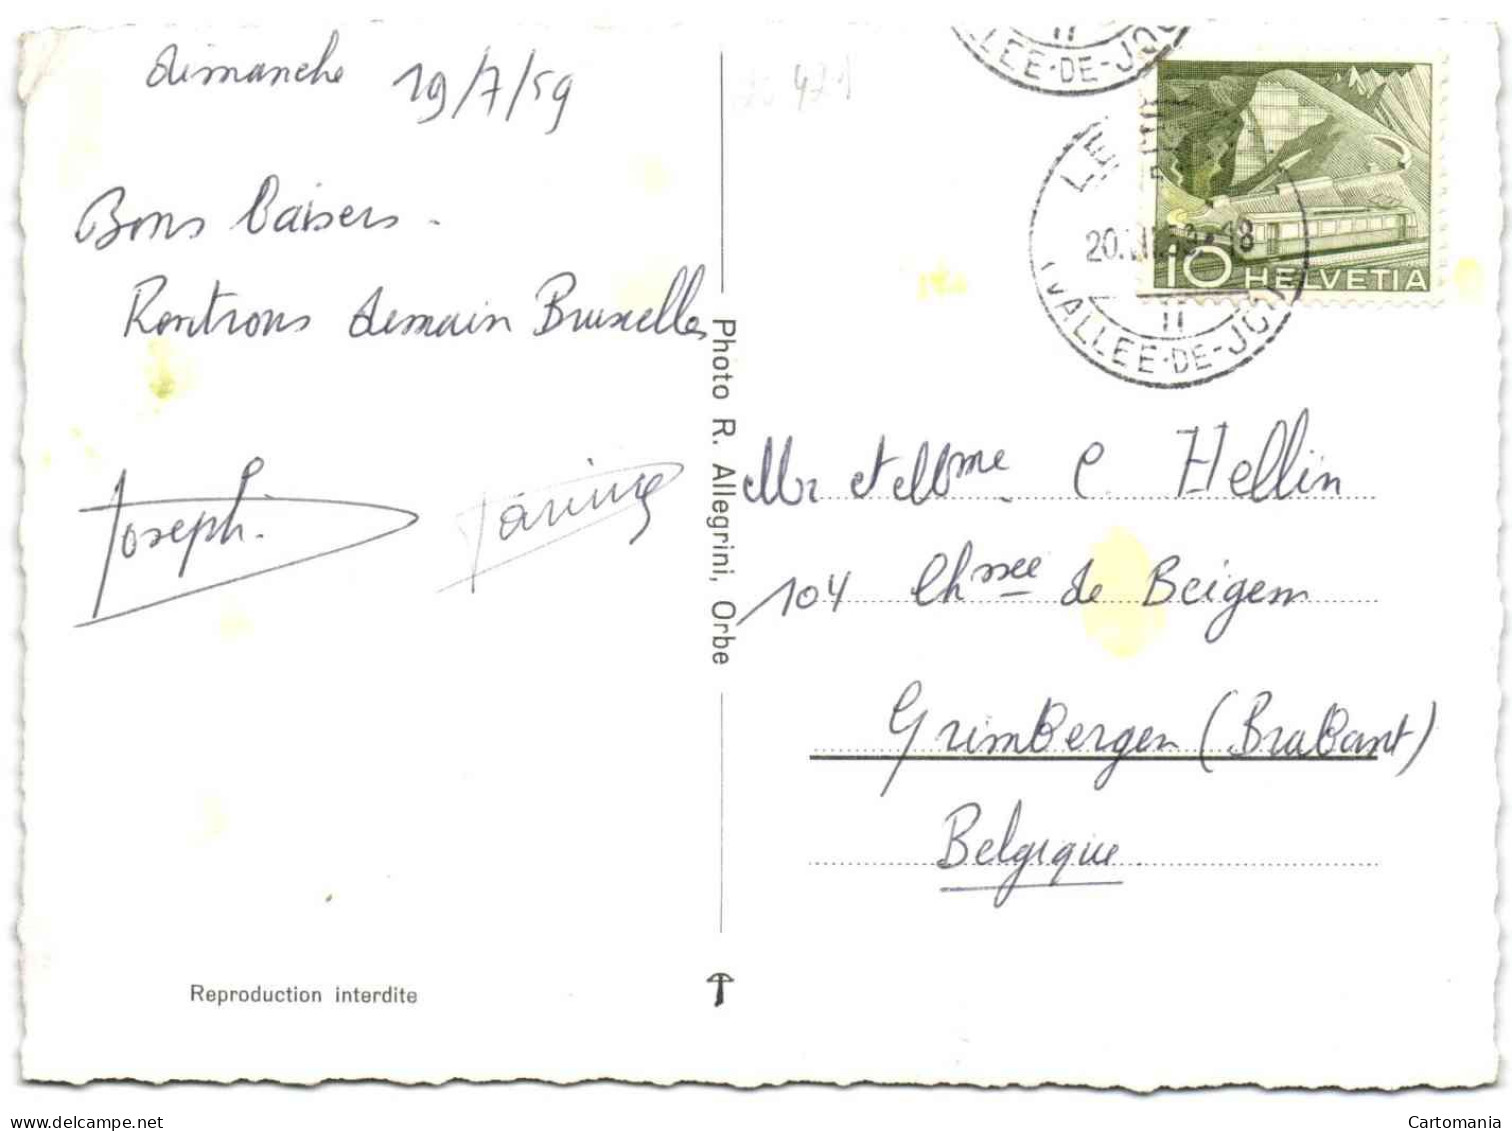 dimanche 19/7/59
Bons baisers.
Rentrons demain Bruxelles
Joseph.
Photo R. Allegrini, Orbe
Reproduction interdite
LLEE-DE-JOU
II
LE
20.VII.59-18
II
(VALLEE-DE-JOU
10 HELVETIA
Mr et Mme C Hellin
104 Chssée de Beigem
Grimbergen (Brabant)
Belgique.
www.delcampe.net
Cartomania